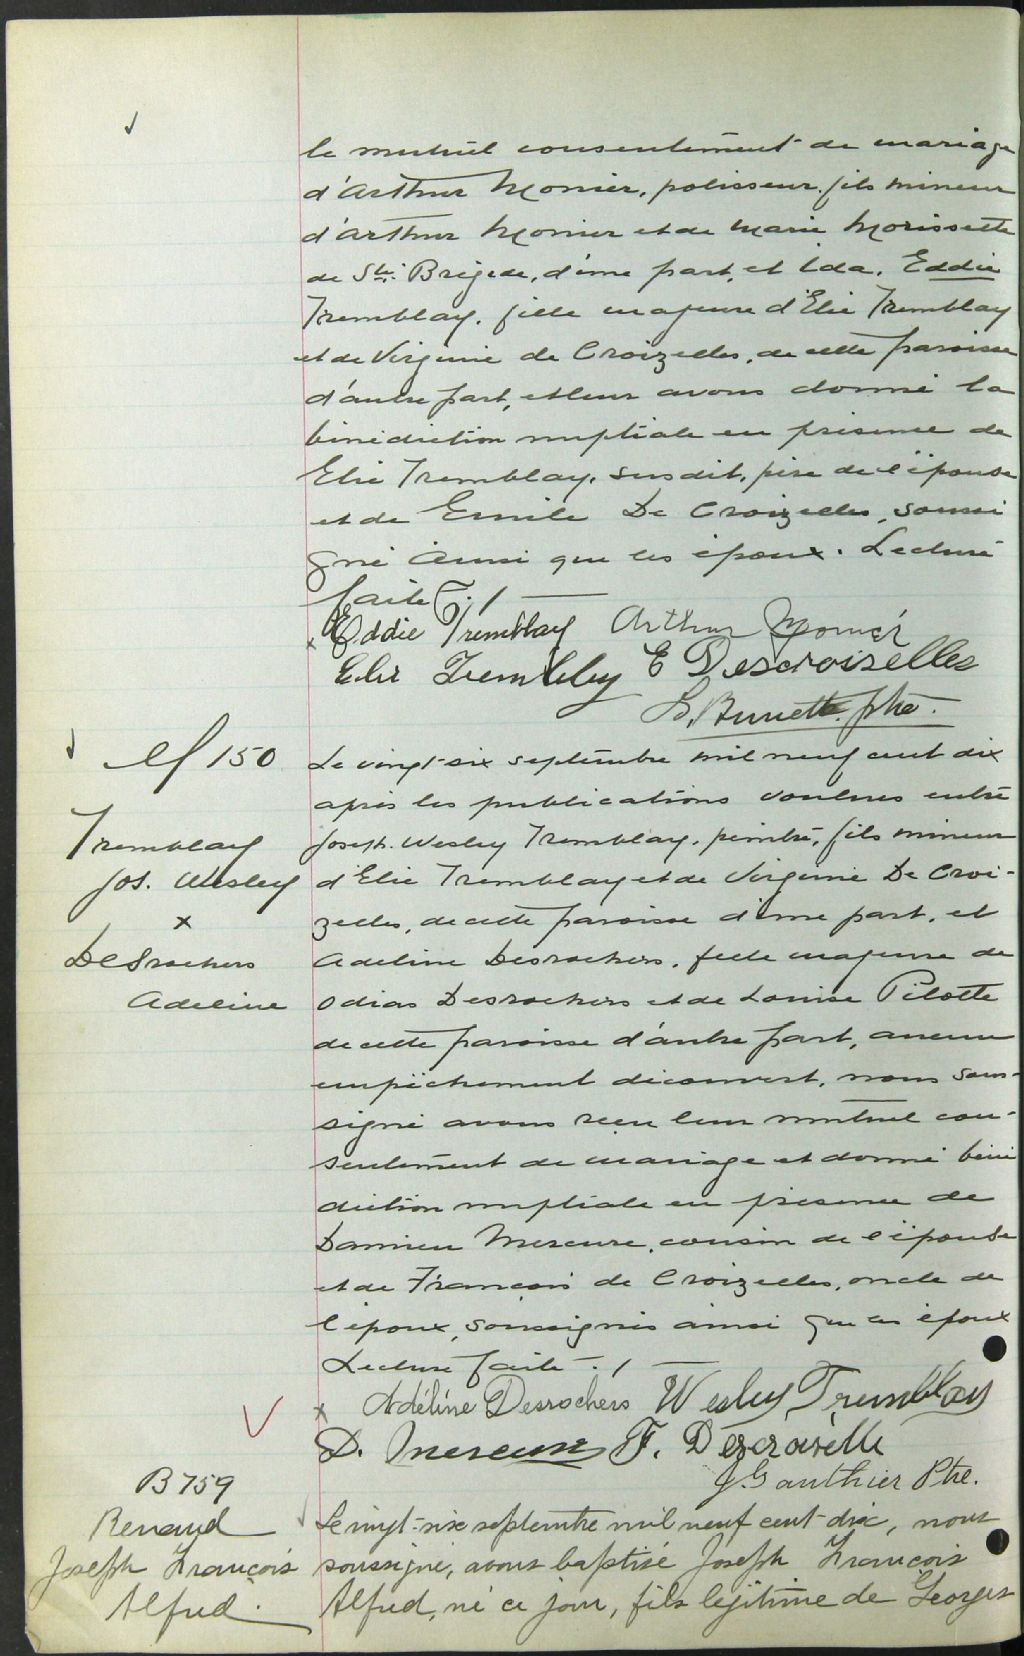 le mutuel consentement de mariage
d'Arthur Monier, polisseur, fils mineur
d'Arthur Monier et de Marie Morissette
de Ste. Brigide, d'une part, et Ida, Eddie
Tremblay, fille majeure d'Elie Tremblay
et de Virginie de Croizelles, de cette paroisse
d'autre part, et leur avons donné la
bénédiction nuptiale en présence de
Elie Tremblay, susdit, père de l'épouse
et de Emile De Croizelles, soussi
gné ainsi que les époux. Lecture
faite ./
x Eddie Tremblay Arthur Monier
Elie Trembley E Descroiselles
Ptre.
M 150
Tremblay
Jos. Wesley
x
Desrochers
Adeline
Le vingt-six septembre mil neuf cent dix
après les publications voulues entre
Joseph Wesley Tremblay, peintre, fils mineur
d'Elie Tremblay et de Virginie De Croi-
zelles, de cette paroisse d'une part, et
Adeline Desrochers, fille majeure de
Odias Desrochers et de Louise Pilotte
de cette paroisse d'autre part, aucun
empêchement découvert, nous sous-
signé avons reçu leur mutuel con-
sentement de mariage et donné béné
diction nuptiale en présence de
Damien Mercure, cousin de l'épouse
et de François de Croizelles, oncle de
l'époux, soussignés ainsi que les époux
Lecture faite ./
x Adéline Desrochers Wesley Tremblay
D. Mercure F. Descroiselle
J. Gauthier Ptre.
B 759
Renaud
Joseph François
Alfred.
Le vingt-six septembre mil neuf cent dix, nous
soussigné, avons baptisé Joseph François
Alfred, né ce jour, fils légitime de Georges